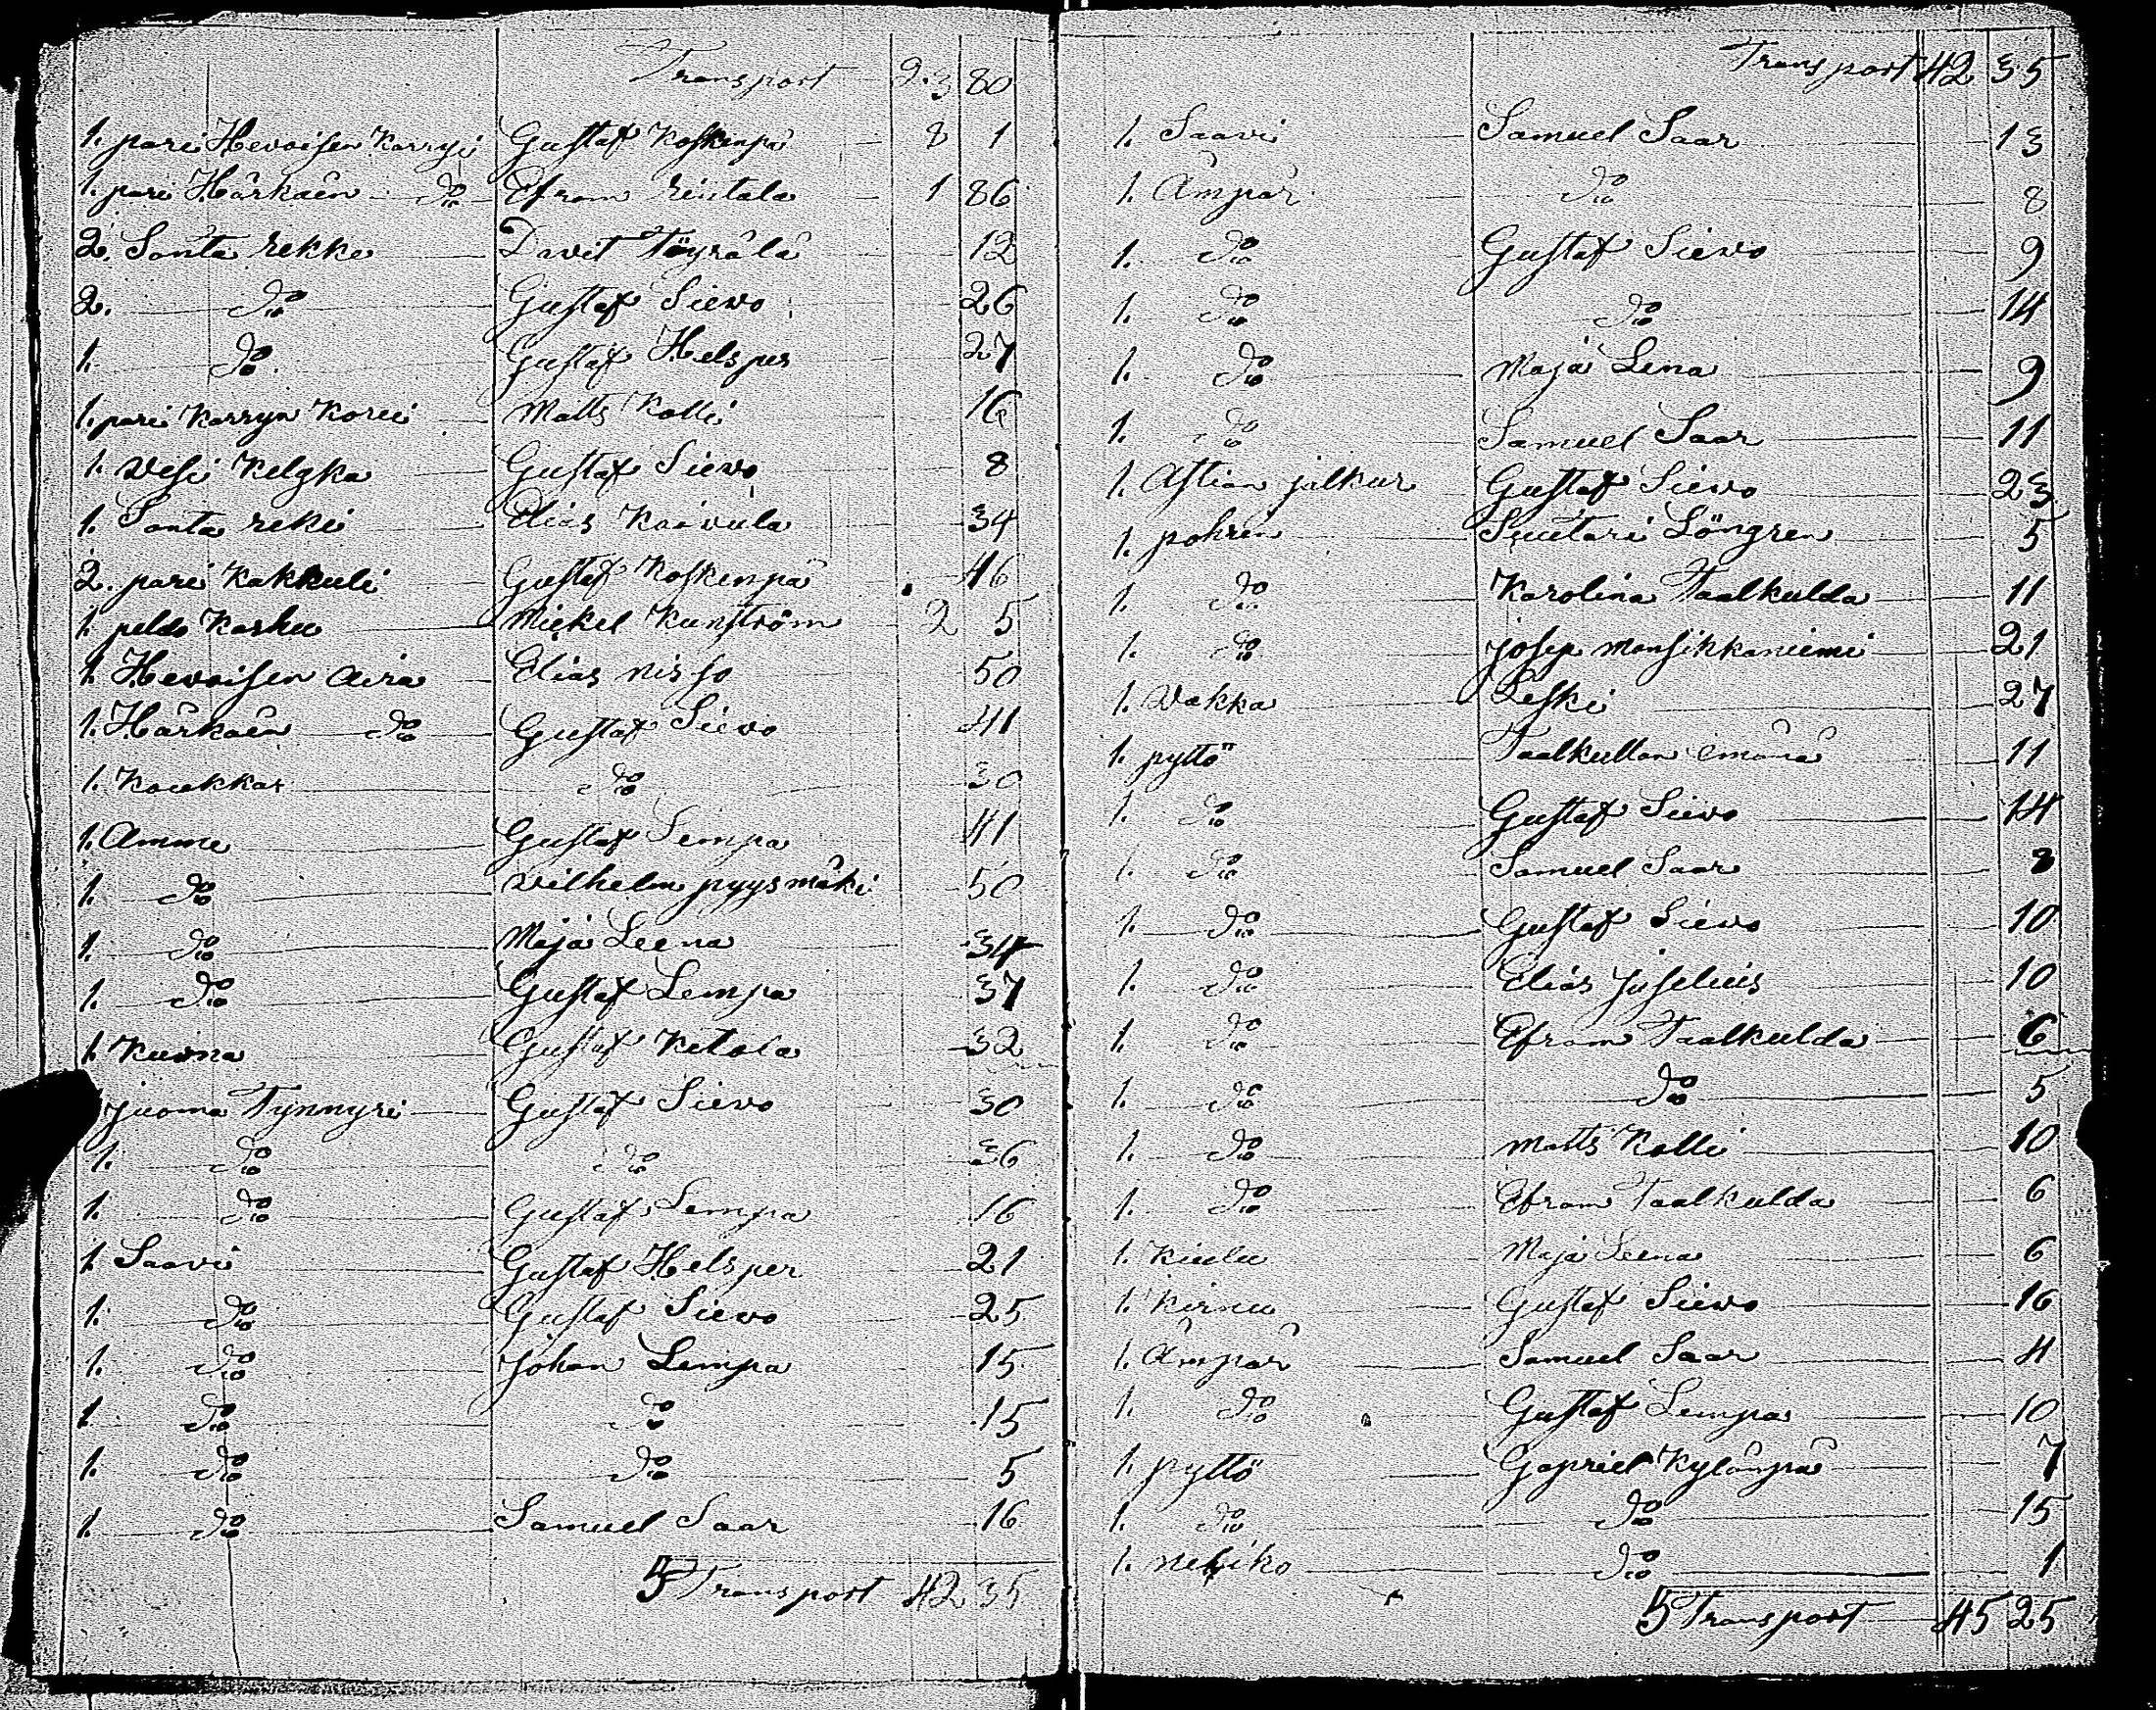 Transport 23 80
1. pari Hevoisen Karryi Gustaf Koskenpä 8 1
1. pari Härkäen do Efram rintala 1 86
2. Sonta rekke Davit Töyrälä 12
2. do Gustaf Sievo 26
1. do Gustaf Helsper 27
1. pari Karryn Korii Matts Kolli 16
1. Vesi Kelgka Gustaf Sievo 8
1. Sonta reki Elias Koivula 34
2. pari Kakkuli Gustaf Koskenpä 46
1. peldo Karhu Mickel Kunström 2 5
1. Hevoisen aira Elias nisso 50
1. Härkäen do Gustaf Sievo 41
1. Koukkar do 30
1. Amme Gustaf Lempa 41
1. do Vilhelm pyysmäki 50
1. do Maja Leena 34
1. do Gustaf Lempa 37
1. Kuvna Gustaf Ketola 32
juoma Tynnyri Gustaf Sievo 30
1. do do 36
1. do Gustaf Lempa 16
1. Saavi Gustaf Helsper 21
1. do Gustaf Sievo 25
1. do Johan Lempa 15
1 do do 15
1. do do 5
1. do Samuel Saar 16
5 Transport 42 35
Transport 42 35
1. Saavi Samuel Saar 13
1. Ämpär do 8
1. do Gustaf Sievo 9
1. do do 14
1. do Maja Lena 9
1. do Samuel Saar 11
1. Astian jalkur Gustaf Sievo 23
1. pohren Suutari Löngren 5
1. do Karolina Taalkulda 11
1. do josep mansikkaniemi 21
1. Vakka Leski 27
1. pyttö Taalkullan emänä 11
1. do Gustaf Sievo 14
1. do Samuel Saar 8
1. do Gustaf Sievo 10
1. do Elias juselius 10
1. do Efram Taalkulda 6
1. do do 5
1. do Matts Kolli 10
1. do Efram Taalkulda 6
1. Kiulu Maja Leena 6
1. Kirnu Gustaf Sievo 16
1. Ämpär Samuel Saar 4
1. do Gustaf Lempa 10
1. pyttö Gapriel Kylänpä 7
1. do do 15
1. do 1
5 Transport 45 25